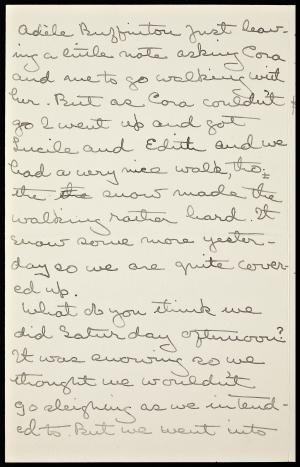 Adele Buffinton just leav-
ing a little note asking Cora
and me to go walking with
her. But as Cora couldn't
go I went up and got
Lucile and Edith and we
had a very nice walk, tho:
the the snow made the
walking rather hard. It
snow some more yester-
day so we are quite cover-
ed up.
What do you think we
did Saturday afternoon?
It was snowing so we
thought we wouldn't
go sleighing as we intend-
ed to. But we went into